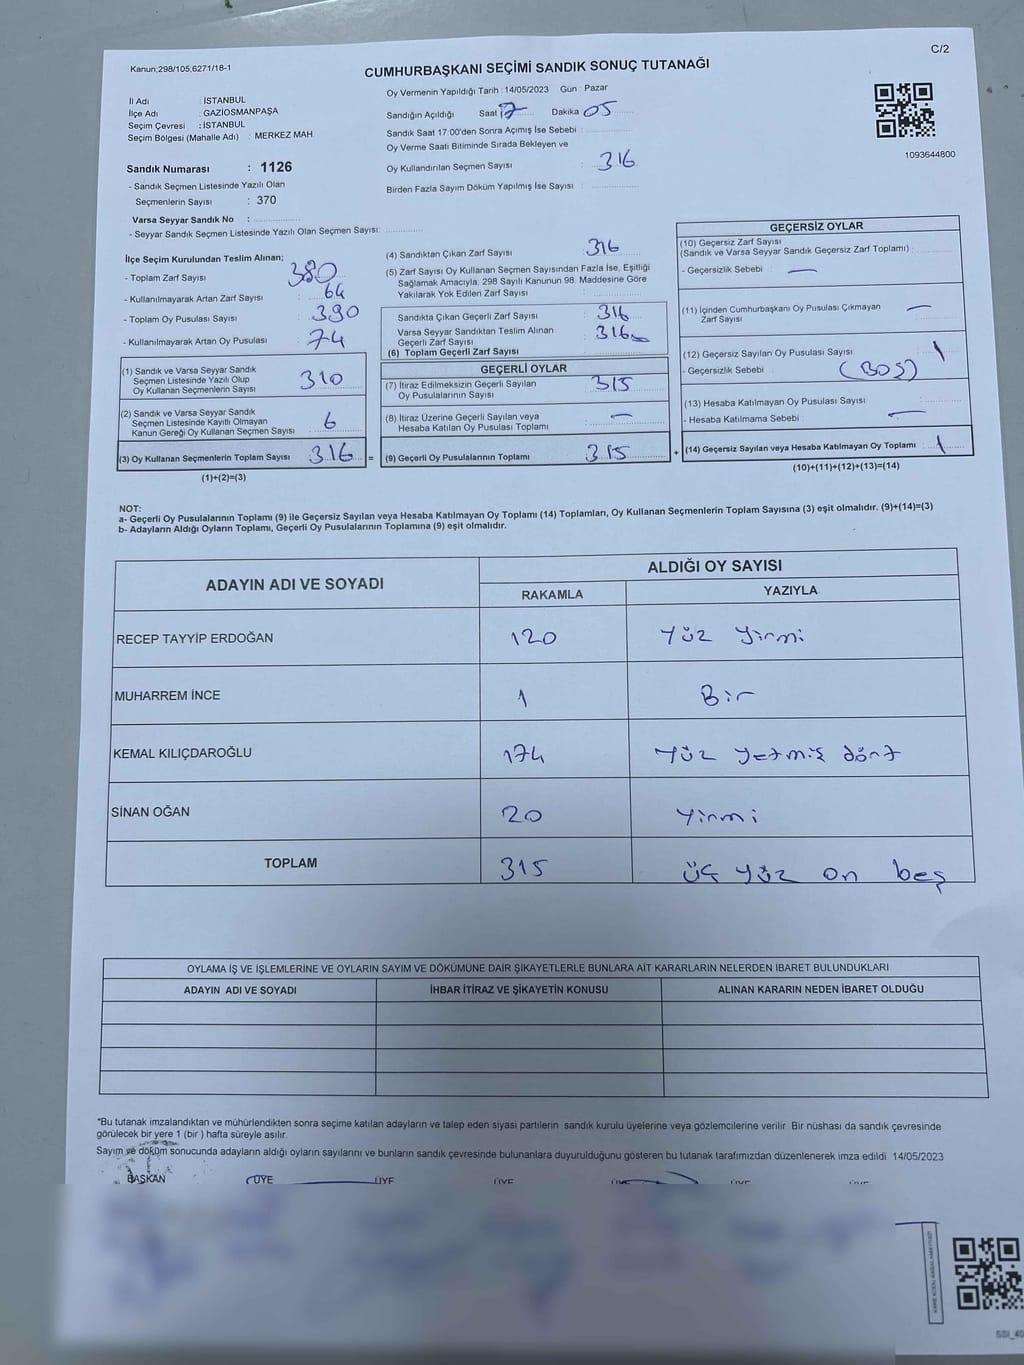 C/2
Kanun:298/105,6271/18-1
CUMHURBAŞKANI SEÇİMİ SANDIK SONUÇ TUTANAĞI
İl Adı : İSTANBUL
İlçe Adı : GAZİOSMANPAŞA
Seçim Çevresi : İSTANBUL
Seçim Bölgesi (Mahalle Adı) : MERKEZ MAH.
Sandık Numarası : 1126
- Sandık Seçmen Listesinde Yazılı Olan
Seçmenlerin Sayısı : 370
Varsa Seyyar Sandık No :
- Seyyar Sandık Seçmen Listesinde Yazılı Olan Seçmen Sayısı:
Oy Vermenin Yapıldığı Tarih : 14/05/2023 Gün : Pazar
Sandığın Açıldığı Saat 17 Dakika 05
Sandık Saat 17:00'den Sonra Açımış İse Sebebi :
Oy Verme Saati Bitiminde Sırada Bekleyen ve
Oy Kullandırılan Seçmen Sayısı : 316
Birden Fazla Sayım Döküm Yapılmış İse Sayısı :
1093644800
İlçe Seçim Kurulundan Teslim Alınan;
- Toplam Zarf Sayısı : 380
- Kullanılmayarak Artan Zarf Sayısı : 64
- Toplam Oy Pusulası Sayısı : 390
- Kullanılmayarak Artan Oy Pusulası : 74
(1) Sandık ve Varsa Seyyar Sandık
Seçmen Listesinde Yazılı Olup
Oy Kullanan Seçmenlerin Sayısı : 310
(2) Sandık ve Varsa Seyyar Sandık
Seçmen Listesinde Kayıtlı Olmayan
Kanun Gereği Oy Kullanan Seçmen Sayısı : 6
(3) Oy Kullanan Seçmenlerin Toplam Sayısı 316 =
(1)+(2)=(3)
(4) Sandıktan Çıkan Zarf Sayısı : 316
(5) Zarf Sayısı Oy Kullanan Seçmen Sayısından Fazla İse, Eşitliği
Sağlamak Amacıyla; 298 Sayılı Kanunun 98. Maddesine Göre
Yakılarak Yok Edilen Zarf Sayısı :
Sandıkta Çıkan Geçerli Zarf Sayısı : 316
Varsa Seyyar Sandıktan Teslim Alınan
Geçerli Zarf Sayısı : 316
(6) Toplam Geçerli Zarf Sayısı :
GEÇERLİ OYLAR
(7) İtiraz Edilmeksizin Geçerli Sayılan
Oy Pusulalarının Sayısı : 315
(8) İtiraz Üzerine Geçerli Sayılan veya
Hesaba Katılan Oy Pusulası Toplamı : —
(9) Geçerli Oy Pusulalarının Toplamı : 315 +
GEÇERSİZ OYLAR
(10) Geçersiz Zarf Sayısı
(Sandık ve Varsa Seyyar Sandık Geçersiz Zarf Toplamı) :
- Geçersizlik Sebebi : —
(11) İçinden Cumhurbaşkanı Oy Pusulası Çıkmayan
Zarf Sayısı : —
(12) Geçersiz Sayılan Oy Pusulası Sayısı : 1
- Geçersizlik Sebebi : (BOŞ)
(13) Hesaba Katılmayan Oy Pusulası Sayısı :
- Hesaba Katılmama Sebebi : —
(14) Geçersiz Sayılan veya Hesaba Katılmayan Oy Toplamı : 1
(10)+(11)+(12)+(13)=(14)
NOT:
a- Geçerli Oy Pusulalarının Toplamı (9) ile Geçersiz Sayılan veya Hesaba Katılmayan Oy Toplamı (14) Toplamları, Oy Kullanan Seçmenlerin Toplam Sayısına (3) eşit olmalıdır. (9)+(14)=(3)
b- Adayların Aldığı Oyların Toplamı, Geçerli Oy Pusulalarının Toplamına (9) eşit olmalıdır.
ADAYIN ADI VE SOYADI ALDIĞI OY SAYISI
RAKAMLA YAZIYLA
RECEP TAYYİP ERDOĞAN 120 Yüz Yirmi
MUHARREM İNCE 1 Bir
KEMAL KILIÇDAROĞLU 174 Yüz yetmiş dört
SİNAN OĞAN 20 Yirmi
TOPLAM 315 üç yüz on beş
OYLAMA İŞ VE İŞLEMLERİNE VE OYLARIN SAYIM VE DÖKÜMÜNE DAİR ŞİKAYETLERLE BUNLARA AİT KARARLARIN NELERDEN İBARET BULUNDUKLARI
ADAYIN ADI VE SOYADI İHBAR İTİRAZ VE ŞİKAYETİN KONUSU ALINAN KARARIN NEDEN İBARET OLDUĞU
*Bu tutanak imzalandıktan ve mühürlendikten sonra seçime katılan adayların ve talep eden siyasi partilerin sandık kurulu üyelerine veya gözlemcilerine verilir. Bir nüshası da sandık çevresinde
görülecek bir yere 1 (bir ) hafta süreyle asılır.
Sayım ve döküm sonucunda adayların aldığı oyların sayılarını ve bunların sandık çevresinde bulunanlara duyurulduğunu gösteren bu tutanak tarafımızdan düzenlenerek imza edildi. 14/05/2023
BAŞKAN ÜYE ÜYE ÜYE ÜYE ÜYE ÜYE